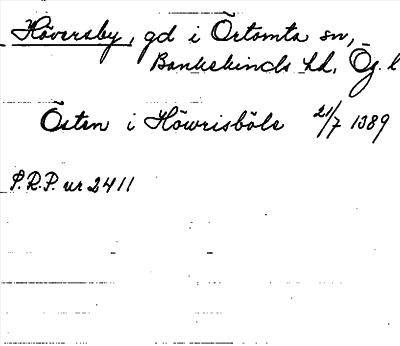 Höversby, gd i Örtomta sn,
Bankekinds hd, Ög. l
Östen i Höwrisböle 21/7 1389
S.R.P. nr 2411